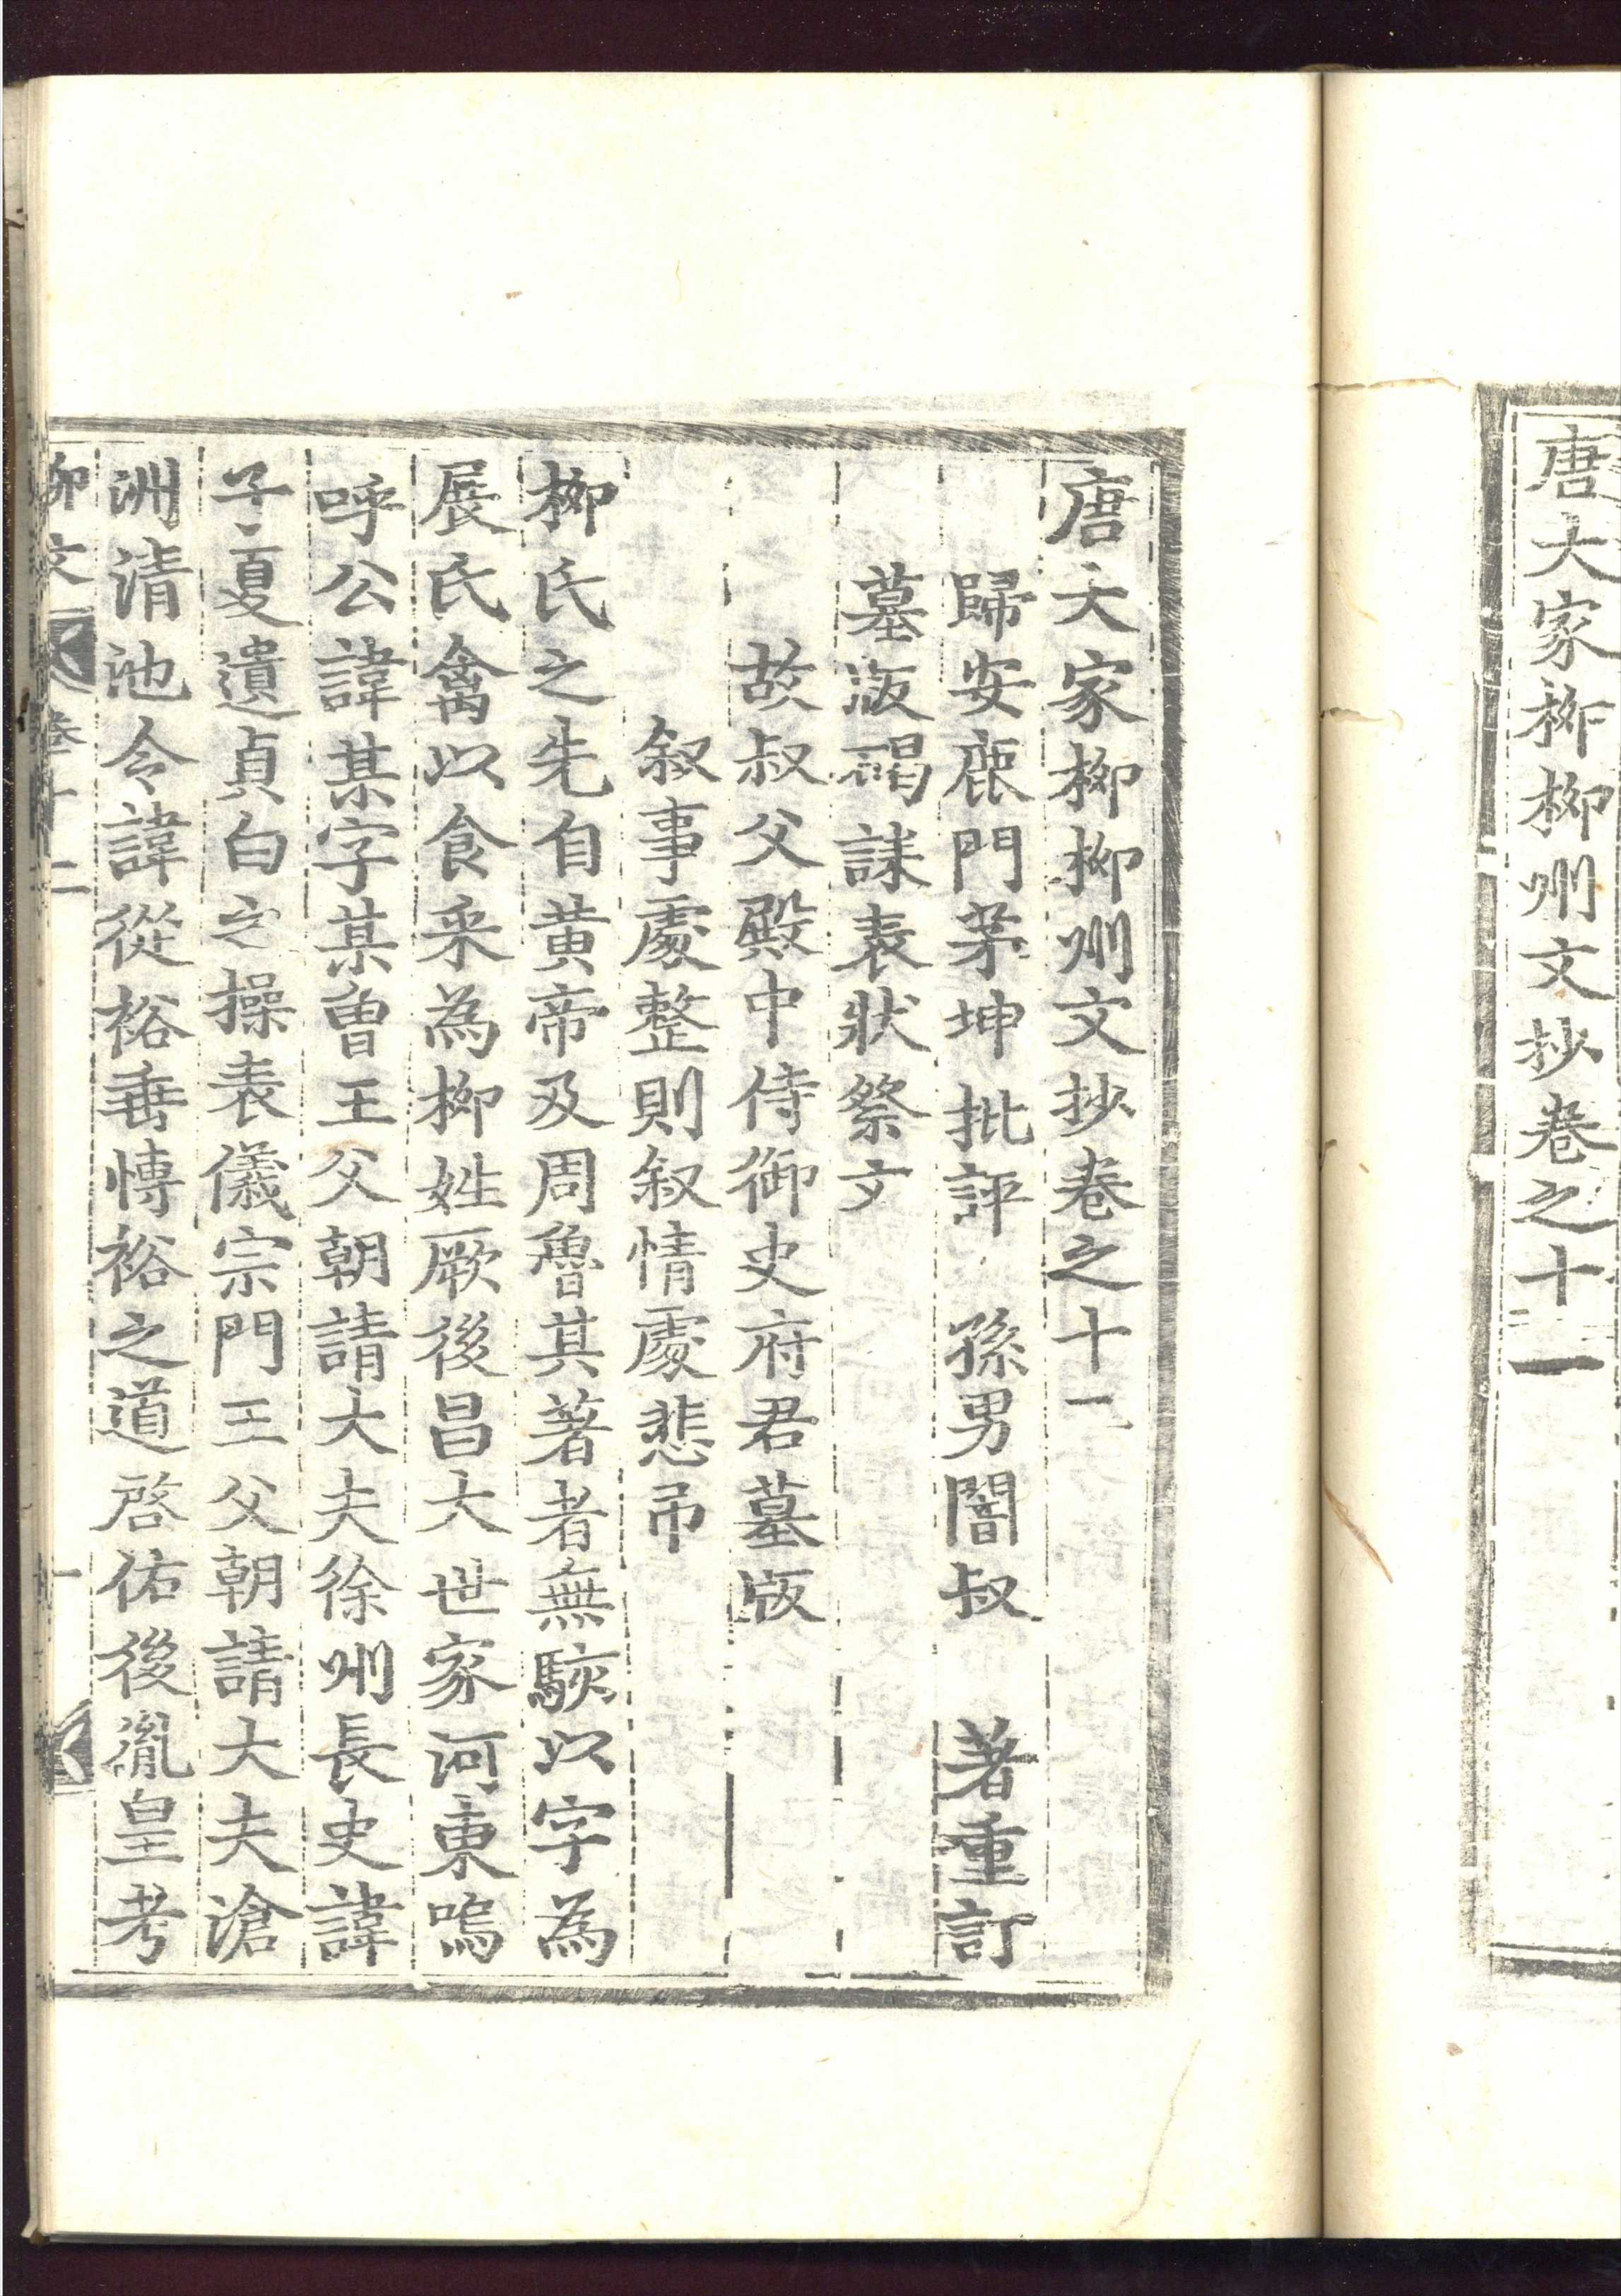 唐大家柳柳州文抄卷之十一
唐大家柳柳州文抄卷之十二
歸安鹿門茅坤批評 孫男闇叔 著重訂
墓版碣誄表狀祭文
故叔父殿中侍御史府君墓版
叙事處整則叙情處悲吊
柳氏之先自黃帝及周魯其著者無駭以字為
展氏禽以食采為柳姓厥後昌大世家河東嗚
呼公諱某字某曾王父朝請大夫徐州長史諱
子夏遺貞白之操表儀宗門王父朝請大夫滄
洲清池令諱從裕垂博裕之道啓佑後胤皇考
柳文 卷十二 一